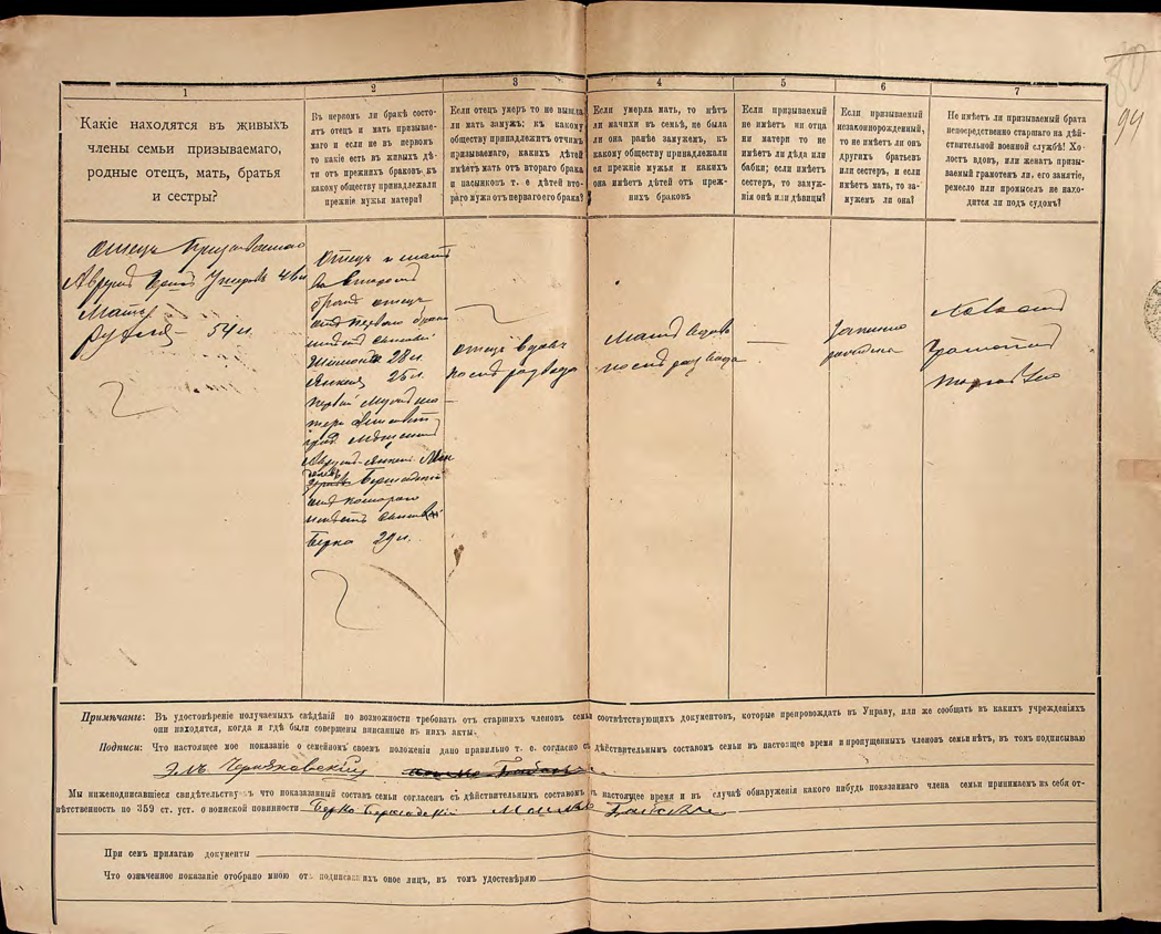 80
94
1
2
3
4
5
6
7
Какіе находятся въ живыхъ
члены семьи призываемаго,
родные отецъ, мать, братья
и сестры?
Въ первомъ ли бракѣ состо-
ятъ отецъ и мать призывае-
маго и если не въ первомъ
то какіе есть въ живыхъ дѣ-
ти отъ прежнихъ браковъ, къ
какому обществу принадлежали
прежніе мужья матери?
Если отецъ умеръ то не вышла
ли мать замужъ: къ какому
обществу принадлежитъ отчимъ
призываемаго, какихъ дѣтей
имѣетъ мать отъ втораго брака
и пасынковъ т. е дѣтей вто-
раго мужа отъ перваго его брака?
Если умерла мать, то нѣтъ
ли мачихи въ семьѣ, не была
ли она ранѣе замужемъ, къ
какому обществу принадлежали
ея прежніе мужья и какихъ
она имѣетъ дѣтей отъ преж-
нихъ браковъ
Если призываемый
не имѣетъ ни отца
ни матери то не
имѣетъ ли дѣда или
бабки; если имѣетъ
сестеръ, то замуж-
нія онѣ или дѣвицы?
Если призываемый
незаконнорожденный,
то не имѣетъ ли онъ
другихъ братьевъ
или сестеръ, и если
имѣетъ мать, то за-
мужемъ ли она?
Не имѣетъ ли призываемый брата
непосредственно старшаго на дѣй-
ствительной военной службѣ! Хо-
лостъ вдовъ, или женатъ призы-
ваемый грамотенъ ли, его занятіе,
ремесло или промыселъ не нахо-
дится ли подъ судомъ?
Отецъ
46 л
Мать
54 л.
Отецъ и мать
во второмъ
бракѣ отецъ
отъ перваго брака
28 л.
25 л.
первый мужъ ма-
тери
Бершадскій
отъ котораго
Берко 29 л.
отецъ вдовъ
послѣ развода
послѣ развода
—
Холостъ
Грамотный
Примѣчаніе: Въ удостовѣреніе получаемыхъ свѣдѣній по возможности требовать отъ старшихъ членовъ семьи соотвѣтствующихъ документовъ, которые препровождать въ Управу, или же сообщать въ какихъ учрежденіяхъ
они находятся, когда и гдѣ были совершены вписанные въ нихъ акты.
Подписи: Что настоящее мое показаніе о семейномъ своемъ положеніи дано правильно т. е. согласно съ дѣйствительнымъ составомъ семьи въ настоящее время и пропущенныхъ членовъ семьи нѣтъ, въ томъ подписываю
Эль Черняховскій
Мы нижеподписавшіеся свидѣтельствуемъ что показанный составъ семьи согласенъ съ дѣйствительнымъ составомъ въ настоящее время и въ случаѣ обнаруженія какого нибудь показаннаго члена семьи принимаемъ на себя от-
вѣтственность по 359 ст. уст. о воинской повинности Берко Бершадскій
При семъ прилагаю документы
Что означенное показаніе отобрано мною отъ подписавшихъ оное лицъ, въ томъ удостовѣряю